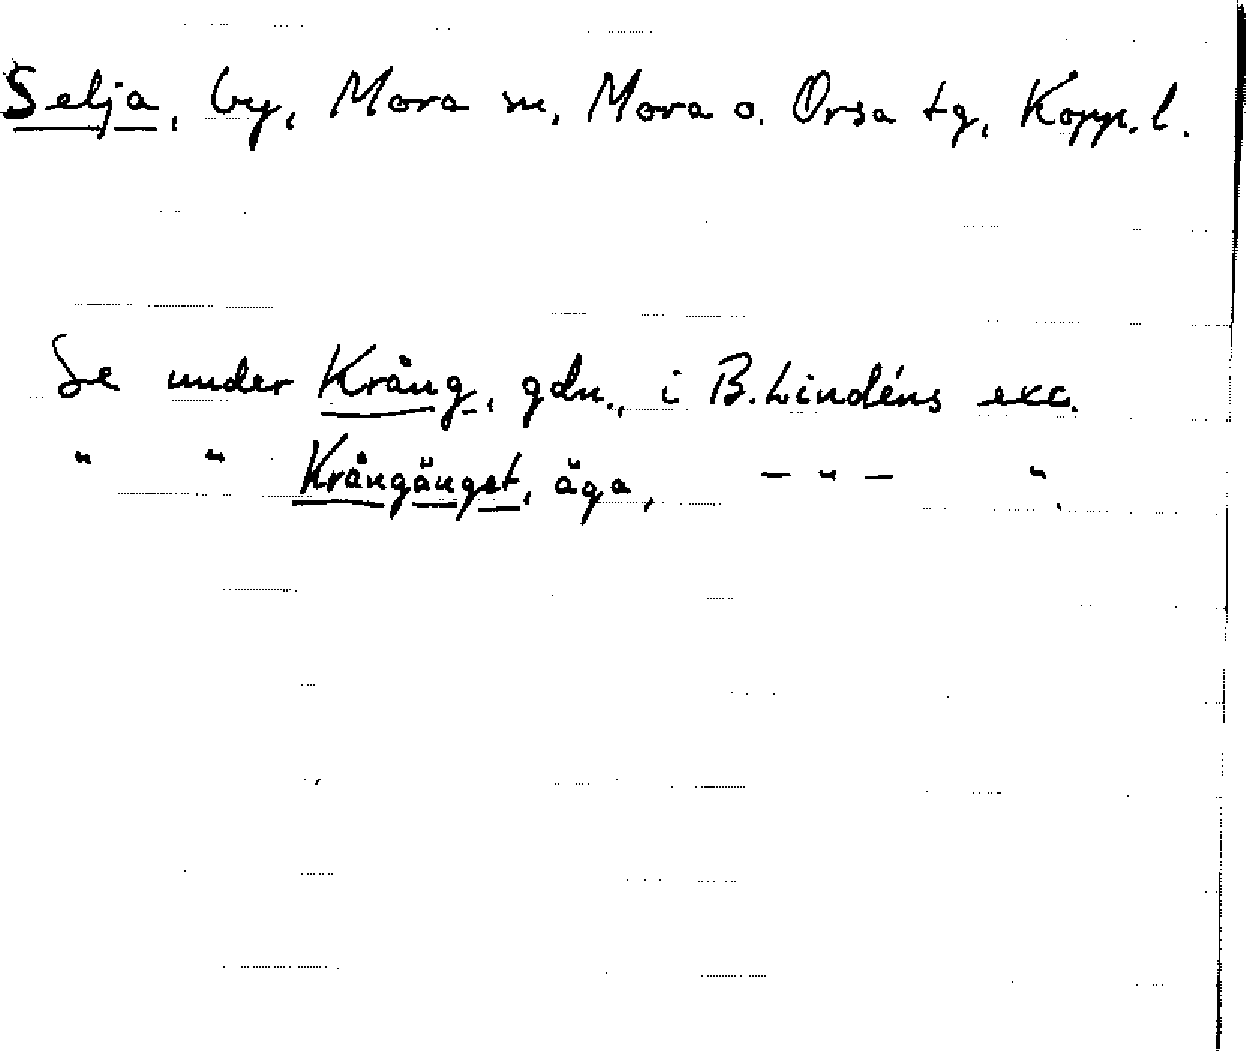 Selja, by, Mora sn, Mora o. Orsa tg, Kopp. l.
Se under Kräng, gdn., i B. Lindéns exc.
" " Krängänget, äga, – " – ".